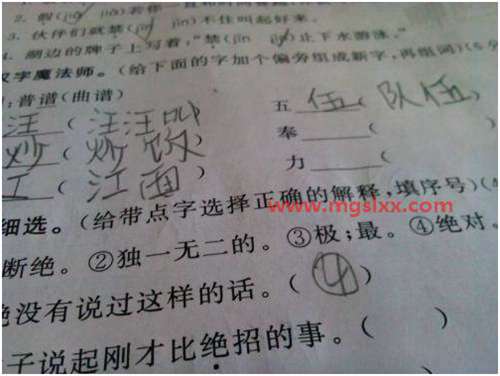 2. 假(jiǎ jià)若你一直
3. 伙伴们就禁(jīn jìn)不住叫起好来。
4. 湖边的牌子上写着,“禁(jīn jìn)止下水游泳。”
汉字魔法师。(给下面的字加个偏旁组成新字,再组词)(6分
:普谱(曲谱) 五 伍 ( 队伍 )
汪 ( 汪汪叫 奉____(
炒 ( 炒饭 力____(
工 ( 江面 )
细选。(给带点字选择正确的解释,填序号)(4
www.mgslxx.com
断绝。②独一无二的。③极;最。④绝对。
绝没有说过这样的话。( ④ )
子说起刚才比绝招的事。( )